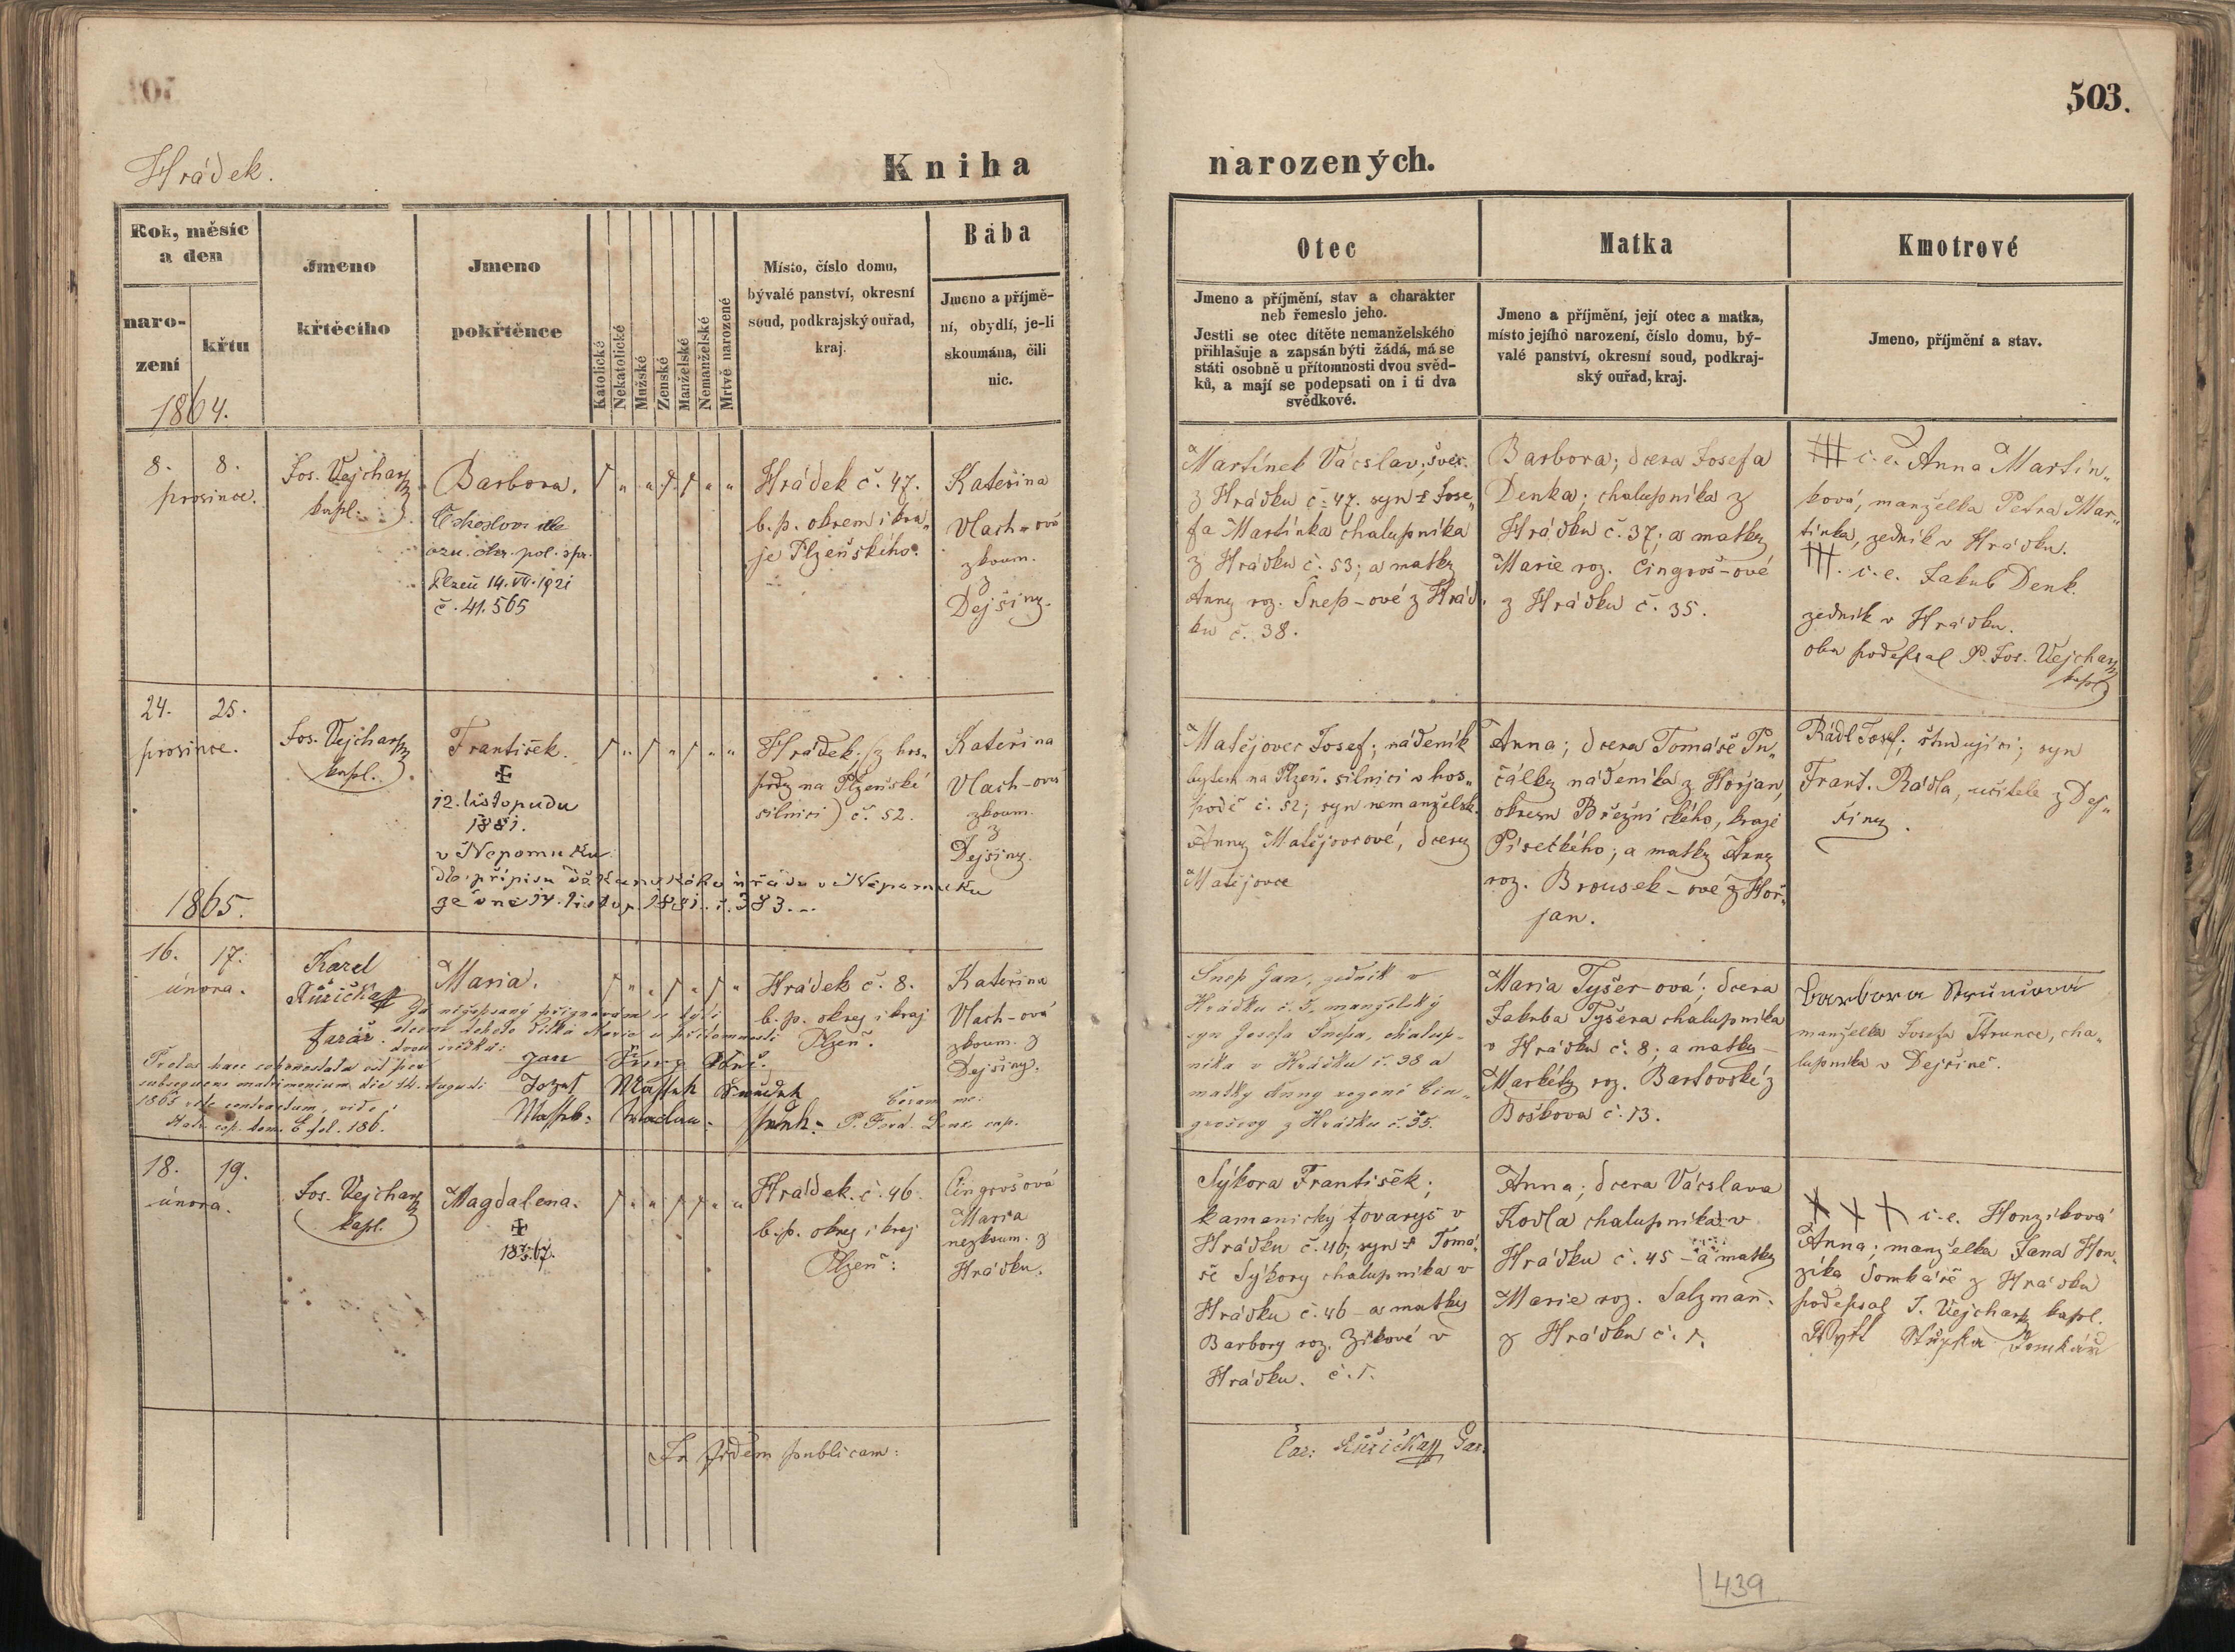 503.
Hrádek.
Kniha narozených.
Rok, měsíc
a den
naro-
zení
křtu
Jmeno
křtěcího
Jmeno
pokřtěnce
Katolické
Nekatolické
Mužské
Ženské
Manželské
Nemanželské
Mrtvě narozené
Místo, číslo domu,
bývalé panství, okresní
soud, podkrajský ouřad,
kraj.
Bába
Jmeno a příjmě-
ní, obydlí, je-li
skoumána, čili
nic.
Otec
Jmeno a příjmění, stav a charakter
neb řemeslo jeho.
Jestli se otec dítěte nemanželského
přihlašuje a zapsán býti žádá, má se
státi osobně u přítomnosti dvou svěd-
ků, a mají se podepsati on i ti dva
svědkové.
Matka
Jmeno a příjmění, její otec a matka,
místo jejího narození, číslo domu, bý-
valé panství, okresní soud, podkraj-
ský ouřad, kraj.
Kmotrové
Jmeno, příjmění a stav.
1864.
8. 8.
prosince.
Jos. Vejchar
kapl.
Barbora.
ozn. okr. pol. spr.
Plzeň 14. VII. 1921
č. 41.565
Hrádek č. 47.
b. p. okrem i kra„
je Plzeňského.
Kateřina
Vlach-ová
zkoum.
z
Dejšiny.
Martínek Vácslav; švec.
z Hrádku č. 47. syn † Jose„
fa Martínka chalupníka
z Hrádku č. 53; a matky
Anny roz. Šnep-ové z Hrád.
ku č. 38.
Barbora; dcera Josefa
Denka; chalupníka z
Hrádku č. 37; a matky
Marie roz. Cingroš-ové
z Hrádku č. 35.
i. e. Anna Martin„
ková, manželka Petra Mar„
tínka, zedník v Hrádku.
i. e. Jakub Denk.
zedník v Hrádku.
oba podepsal P. Jos. Vejchar
kapl.
24. 25.
prosince.
Jos. Vejchar
kapl.
František.
12. listopadu
1881.
v Nepomuku
dle přípisu děkanského úřadu v Nepomuku
ze dne 14. listop. 1881. č. 383.
Hrádek; (z hos„
pody na Plzeňské
silnici) č. 52.
Kateřina
Vlach-ová
zkoum.
z
Dejšiny.
Matějovec Josef; nádeník
bytem na Plzeň. silnici v hos„
podě č. 52; syn nemanželsk.
Anny Matějovcové, dcery
Matějovce
Anna; dcera Tomáše Pu„
čálky nádeníka z Horjan,
okresu Březnického, kraje
Píseckého; a matky Anny
roz. Brousek-ové z Hor„
jan.
Rádl Josef; študující; syn
Frant. Rádla, učitele z Dej„
šiny.
1865.
16. 17.
února.
Karel
Růžička
farář.
Maria.
Já nížepsaný přiznávám se býti
otcem tohoto dítka Marie u přítomnosti
dvou svědků:
Jan
Josef
Hrádek č. 8.
b. p. okres i kraj
Plzeň.
Kateřina
Vlach-ová
zkoum. z
Dejšiny.
Proles haec cohonestata est per
subsequens matrimonium die 14. Augusti
1865 rite contractum, vide:
Matr. cop. tom. E fol. 186.
coram me:
P. Ferd. cap.
Šnep Jan, zedník v
Hrádku č. 5, manželský
syn Josefa Šnepa, chalup-
níka v Hrádku č. 38 a
matky Anny rozené Cin„
grošovy z Hrádku č. 35.
Maria Tyšer-ová; dcera
Jakuba Tyšera chalupníka
v Hrádku č. 8; a matky
Markéty roz. Bartovské z
Boškova č. 13.
Barbora Štruncová
manželka Josefa Štrunce, cha„
lupníka v Dejšině.
18. 19.
února.
Jos. Vejchar
kapl.
Magdalena.
Hrádek. č. 46.
b. p. okres i kraj
Plzeň:
Cingrošová
Maria
nezkoum. z
Hrádku.
Sýkora František;
kamenický tovaryš v
Hrádku č. 46; syn † Tomá„
še Sýkory chalupníka v
Hrádku č. 46 a matky
Barbory roz. Zikové v
Hrádku. č. 1.
Anna; dcera Vácslava
Kodla chalupníka v
Hrádku č. 45 - a matky
Marie roz. Salzman.
z Hrádku č. 1.
+ + + i. e. Honzíková
Anna; manželka Jana Hon„
zíka domkáře z Hrádku
podepsal J. Vejchar kapl.
In fidem publicam:
Car: Růžička Par.
439